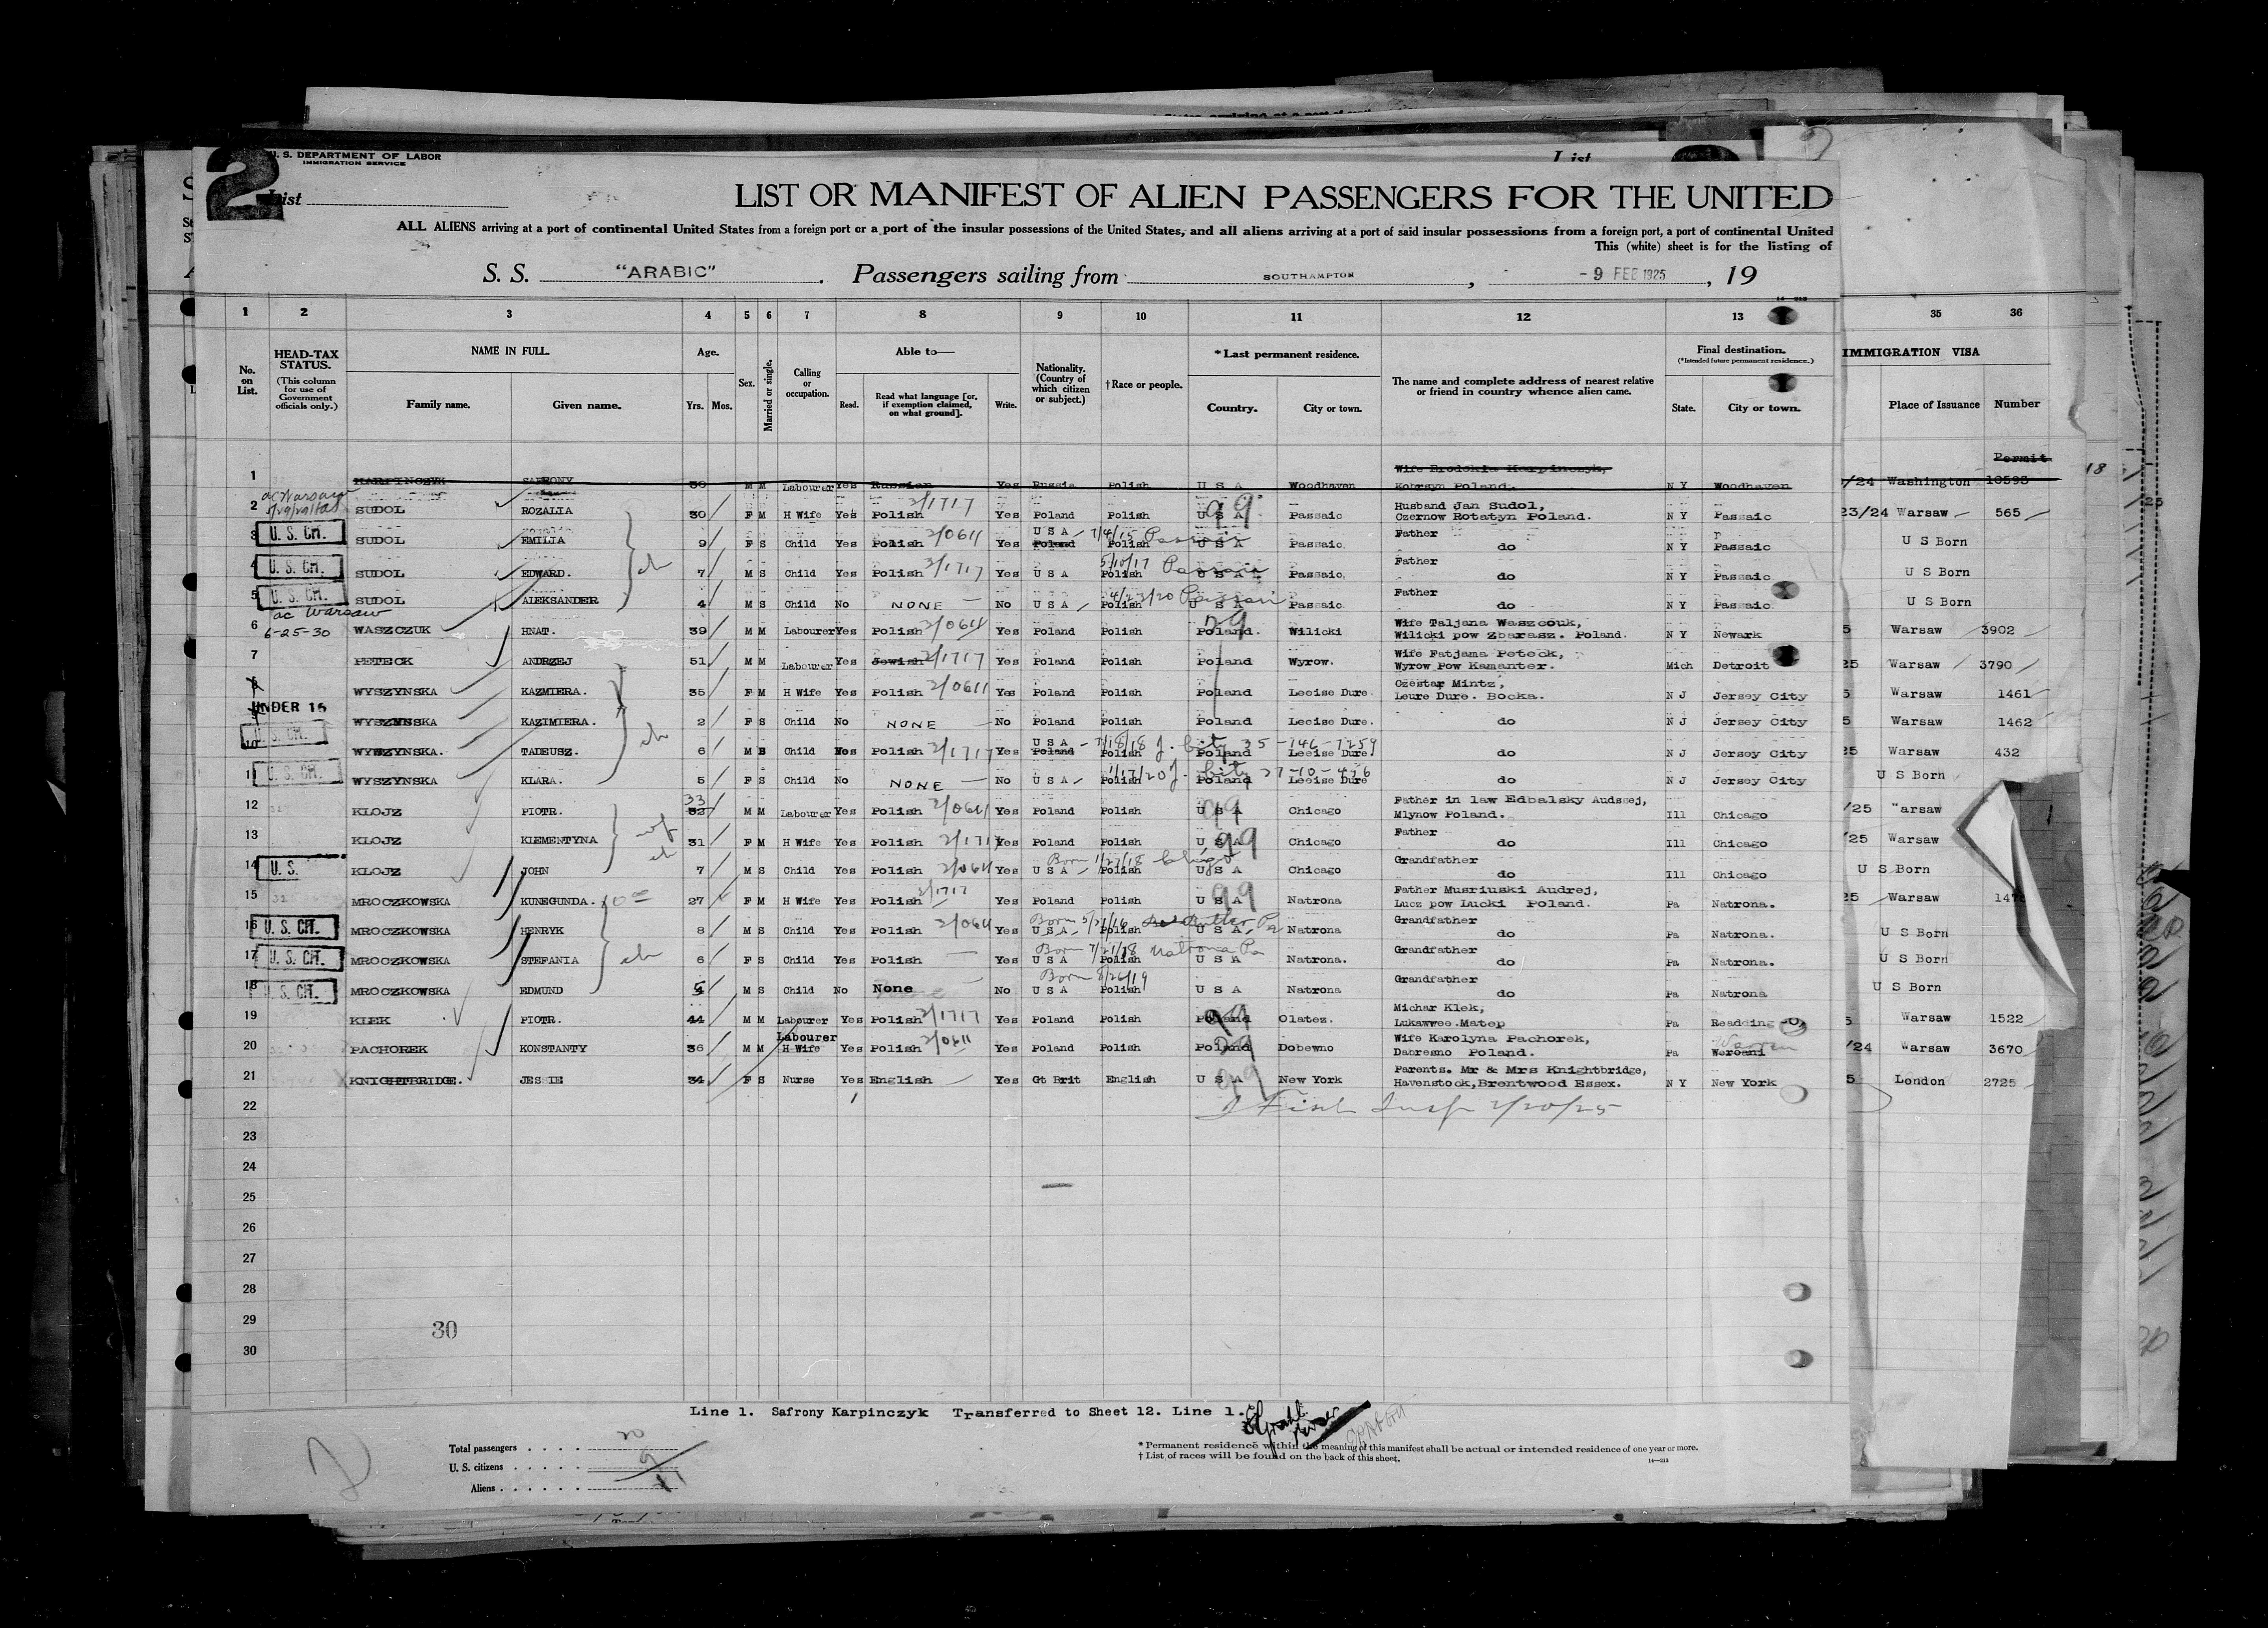 U. S. DEPARTMENT OF LABOR
IMMIGRATION SERVICE
List
2 List
LIST OR MANIFEST OF ALIEN PASSENGERS FOR THE UNITED
ALL ALIENS arriving at a port of continental United States from a foreign port or a port of the insular possessions of the United States, and all aliens arriving at a port of said insular possessions from a foreign port, a port of continental United
This (white) sheet is for the listing of
S. S. "ARABIC". Passengers sailing from SOUTHAMPTON, - 9 FEB 1925, 19
1 2 3 4 5 6 7 8 9 10 11 12 13 35 36
No. on List. HEAD-TAX STATUS. (This column for use of Government officials only.) NAME IN FULL. Family name. Given name. Age. Yrs. Mos. Sex. Married or single. Calling or occupation. Able to— Read. Read what language [or, if exemption claimed, on what ground]. Write. Nationality. (Country of which citizen or subject.) †Race or people. *Last permanent residence. Country. City or town. The name and complete address of nearest relative or friend in country whence alien came. Final destination. (*Intended future permanent residence.) State. City or town. IMMIGRATION VISA Place of Issuance Number
1 KARPINCZYK SAFRONY 39 M M Labourer Yes Russian Yes Russia Polish U S A Woodhaven Wife Brodckia Karpinczyk, Kotrsyn Poland. N Y Woodhaven /24 Washington Permit 10593
2 ac Warsaw SUDOL ROZALIA 30 F M H Wife Yes Polish 2/1717 Yes Poland Polish U S A 99 Passaic Husband Jan Sudol, Czernow Rotatyn Poland. N Y Passaic 23/24 Warsaw 565
3 U. S. CIT. SUDOL EMILIA 9 F S Child Yes Polish 2/0611 Yes U S A Poland 7/4/15 Passaic Polish U S A Passaic Father do N Y Passaic U S Born
4 U. S. CIT. SUDOL EDWARD. 7 M S Child Yes Polish 2/1717 Yes U S A 5/10/17 Passaic Polish U S A Passaic, Father do N Y Passaic U S Born
5 U. S. CIT. SUDOL ALEKSANDER 4 M S Child No NONE No U S A 4/23/20 Passaic Polish U S A Passaic Father do N Y Passaic U S Born
6 ac Warsaw 6-25-30 WASZCZUK HNAT. 39 M M Labourer Yes Polish 2/0611 Yes Poland Polish Poland. 29 Wilicki Wife Taljana Waszcouk, Wilicki pow Zbarasz. Poland. N Y Newark 5 Warsaw 3902
7 PETECK ANDRZEJ 51 M M Labourer Yes Jewish 2/1717 Yes Poland Polish Poland Wyrow. Wife Fatjama Peteck, Wyrow Pow Kamanter. Mich Detroit 25 Warsaw 3790
8 WYSZYNSKA KAZMIERA. 35 F M H Wife Yes Polish 2/0611 Yes Poland Polish Poland Lecise Dure. Czestar Mintz, Leure Dure. Bocka. N J Jersey City 5 Warsaw 1461
9 UNDER 16 WYSZYNSKA KAZIMIERA. 2 F S Child No NONE No Poland Polish Poland Lecise Dure. do N J Jersey City 5 Warsaw 1462
10 U. S. CIT. WYSZYNSKA. TADEUSZ. 6 M S Child Yes Polish 2/1717 Yes U S A Poland 7/18/18 J. City 35-746-7259 Polish Poland Lecise Dure. do N J Jersey City 25 Warsaw 432
11 U. S. CIT. WYSZYNSKA KLARA. 5 F S Child No NONE No U S A 1/17/20 J. City 27-10-456 Polish Poland Lecise Dure do N J Jersey City U S Born
12 KLOJZ PIOTR. 33 32 M M Labourer Yes Polish 2/0611 Yes Poland Polish U S A 99 Chicago Father in law Edbalsky Audssej, Mlynow Poland. Ill Chicago /25 "arsaw
13 KLOJZ KLEMENTYNA 31 F M H Wife Yes Polish 2/1717 Yes Poland Polish U S A 99 Chicago Father do Ill Chicago /25 Warsaw
14 U. S. KLOJZ JOHN 7 M S Child Yes Polish 2/0611 Yes Born 1/27/18 Chicago U S A Polish U S A Chicago Grandfather do Ill Chicago U S Born
15 MROCZKOWSKA KUNEGUNDA. 27 F M H Wife Yes Polish 2/1717 Yes Poland Polish U S A 99 Natrona Father Musriuski Audrej, Lucz pow Lucki Poland. Pa Natrona. 25 Warsaw 147
16 U. S. CIT. MROCZKOWSKA HENRYK 8 M S Child Yes Polish 2/0611 Yes Born 5/21/16 Butler Pa U S A Polish U S A Natrona Grandfather do Pa Natrona. U S Born
17 U. S. CIT. MROCZKOWSKA STEFANIA 6 F S Child Yes Polish Yes Born 7/21/18 Natrona Pa U S A Polish U S A Natrona. Grandfather do Pa Natrona. U S Born
18 U. S. CIT. MROCZKOWSKA EDMUND 5 M S Child No None No Born 8/26/19 U S A Polish U S A Natrona Grandfather do Pa Natrona U S Born
19 KLEK PIOTR. 44 M M Labourer Yes Polish 2/1717 Yes Poland Polish Poland 99 Olatez. Michar Klek, Lukawwee.Matep Pa Readding 5 Warsaw 1522
20 PACHOREK KONSTANTY 36 M M Labourer H Wife Yes Polish 2/0611 Yes Poland Polish Poland 29 Dobewno Wife Karolyna Pachorek, Dabresno Poland. Pa Weroani Warren /24 Warsaw 3670
21 KNIGHTBRIDGE. JESSIE 34 F S Nurse Yes English Yes Gt Brit English U S A 99 New York Parents. Mr & Mrs Knightbridge, Havenstock,Brentwood Essex. N Y New York 5 London 2725
22 Insp 2/20/25
23
24
25
26
27
28
29
30
30
Line 1. Safrony Karpinczyk Transferred to Sheet 12. Line 1.
Total passengers . . . . 20
U. S. citizens . . . . . 9
Aliens . . . . . . 11
* Permanent residence within the meaning of this manifest shall be actual or intended residence of one year or more.
† List of races will be found on the back of this sheet.
14—213